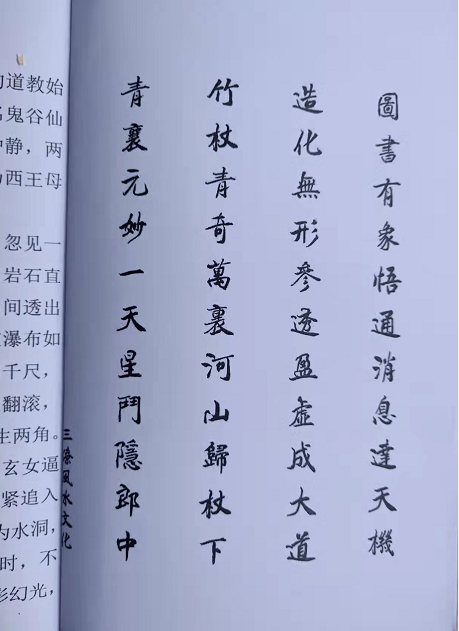 道教始
鬼谷仙
静，两
西王母
忽见一
岩石直
间透出
瀑布如
千尺，
翻滚，
生两角。
玄女逼
紧追入
为水洞，
时，不
幻光，
圖書有象悟通消息達天機
造化無形參透盈虛成大道
竹杖青奇萬裏河山歸杖下
青襄元妙一天星鬥隱郎中
三風水文化